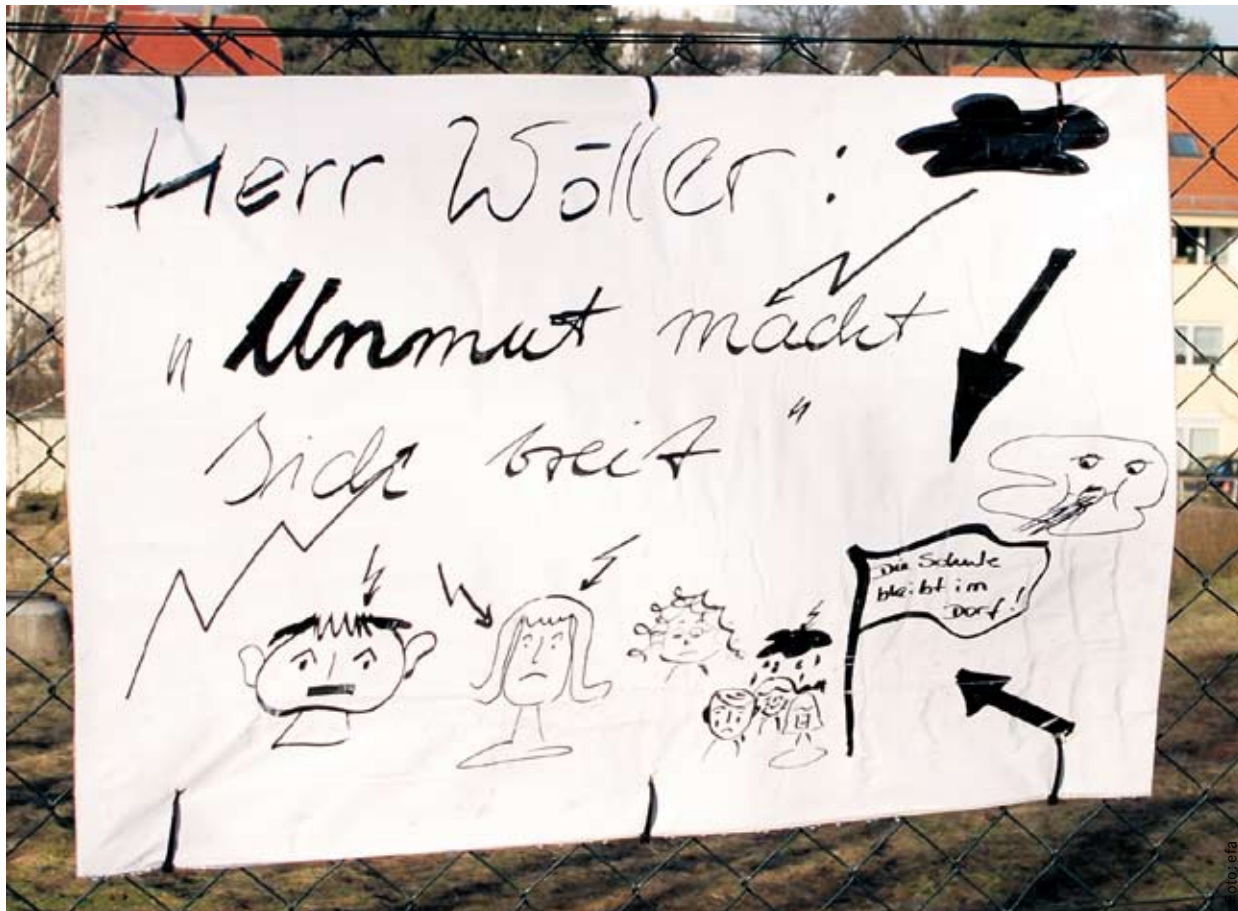 Herr Wöller:
„Unmut macht
sich breit"
Die Schule
bleibt im
Dorf!
Foto: efa